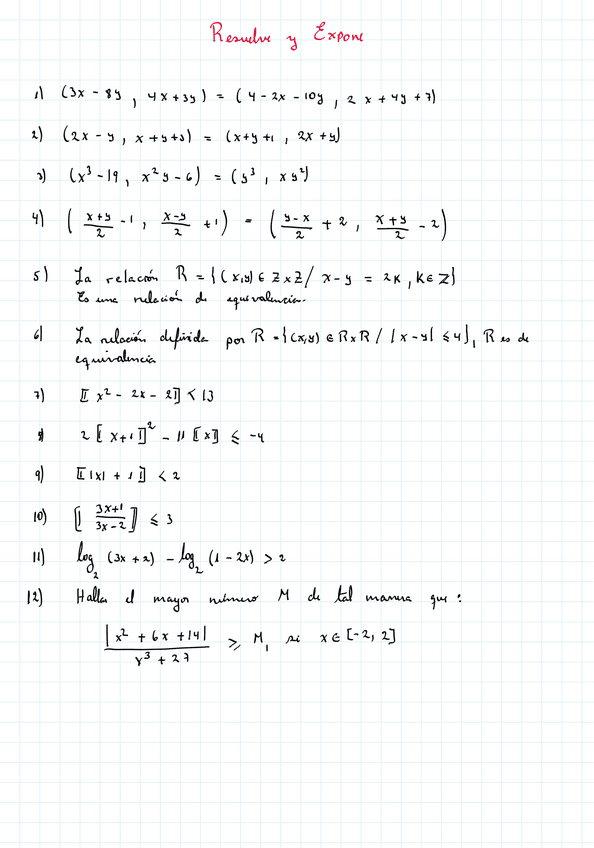 Resuelve y Expone
1) (3x - 8y , 4x + 3y) = (4 - 2x - 10y , 2x + 4y + 7)
2) (2x - y , x + y + 3) = (x + y + 1 , 2x + y)
3) (x³ - 19 , x²y - 6) = (y³ , xy²)
4) ( (x+y)/2 - 1 , (x-y)/2 + 1 ) = ( (y-x)/2 + 2 , (x+y)/2 - 2 )
5) La relación R = {(x,y) ∈ Z x Z / x - y = 2K , K ∈ Z}
Es una relación de equivalencia.
6) La relación definida por R = {(x,y) ∈ R x R / |x - y| ≤ 4}, R es de
equivalencia
7) ⟦x² - 2x - 2⟧ < 13
8) 2⟦x + 1⟧² - 11⟦x⟧ ≤ -4
9) ⟦|x| + 1⟧ < 2
10) ⟦(3x+1)/(3x-2)⟧ ≤ 3
11) log₂ (3x + 2) - log₂ (1 - 2x) > 2
12) Halla el mayor número M de tal manera que :
|x² + 6x + 14| / (x³ + 27) ≥ M, si x ∈ [-2, 2]